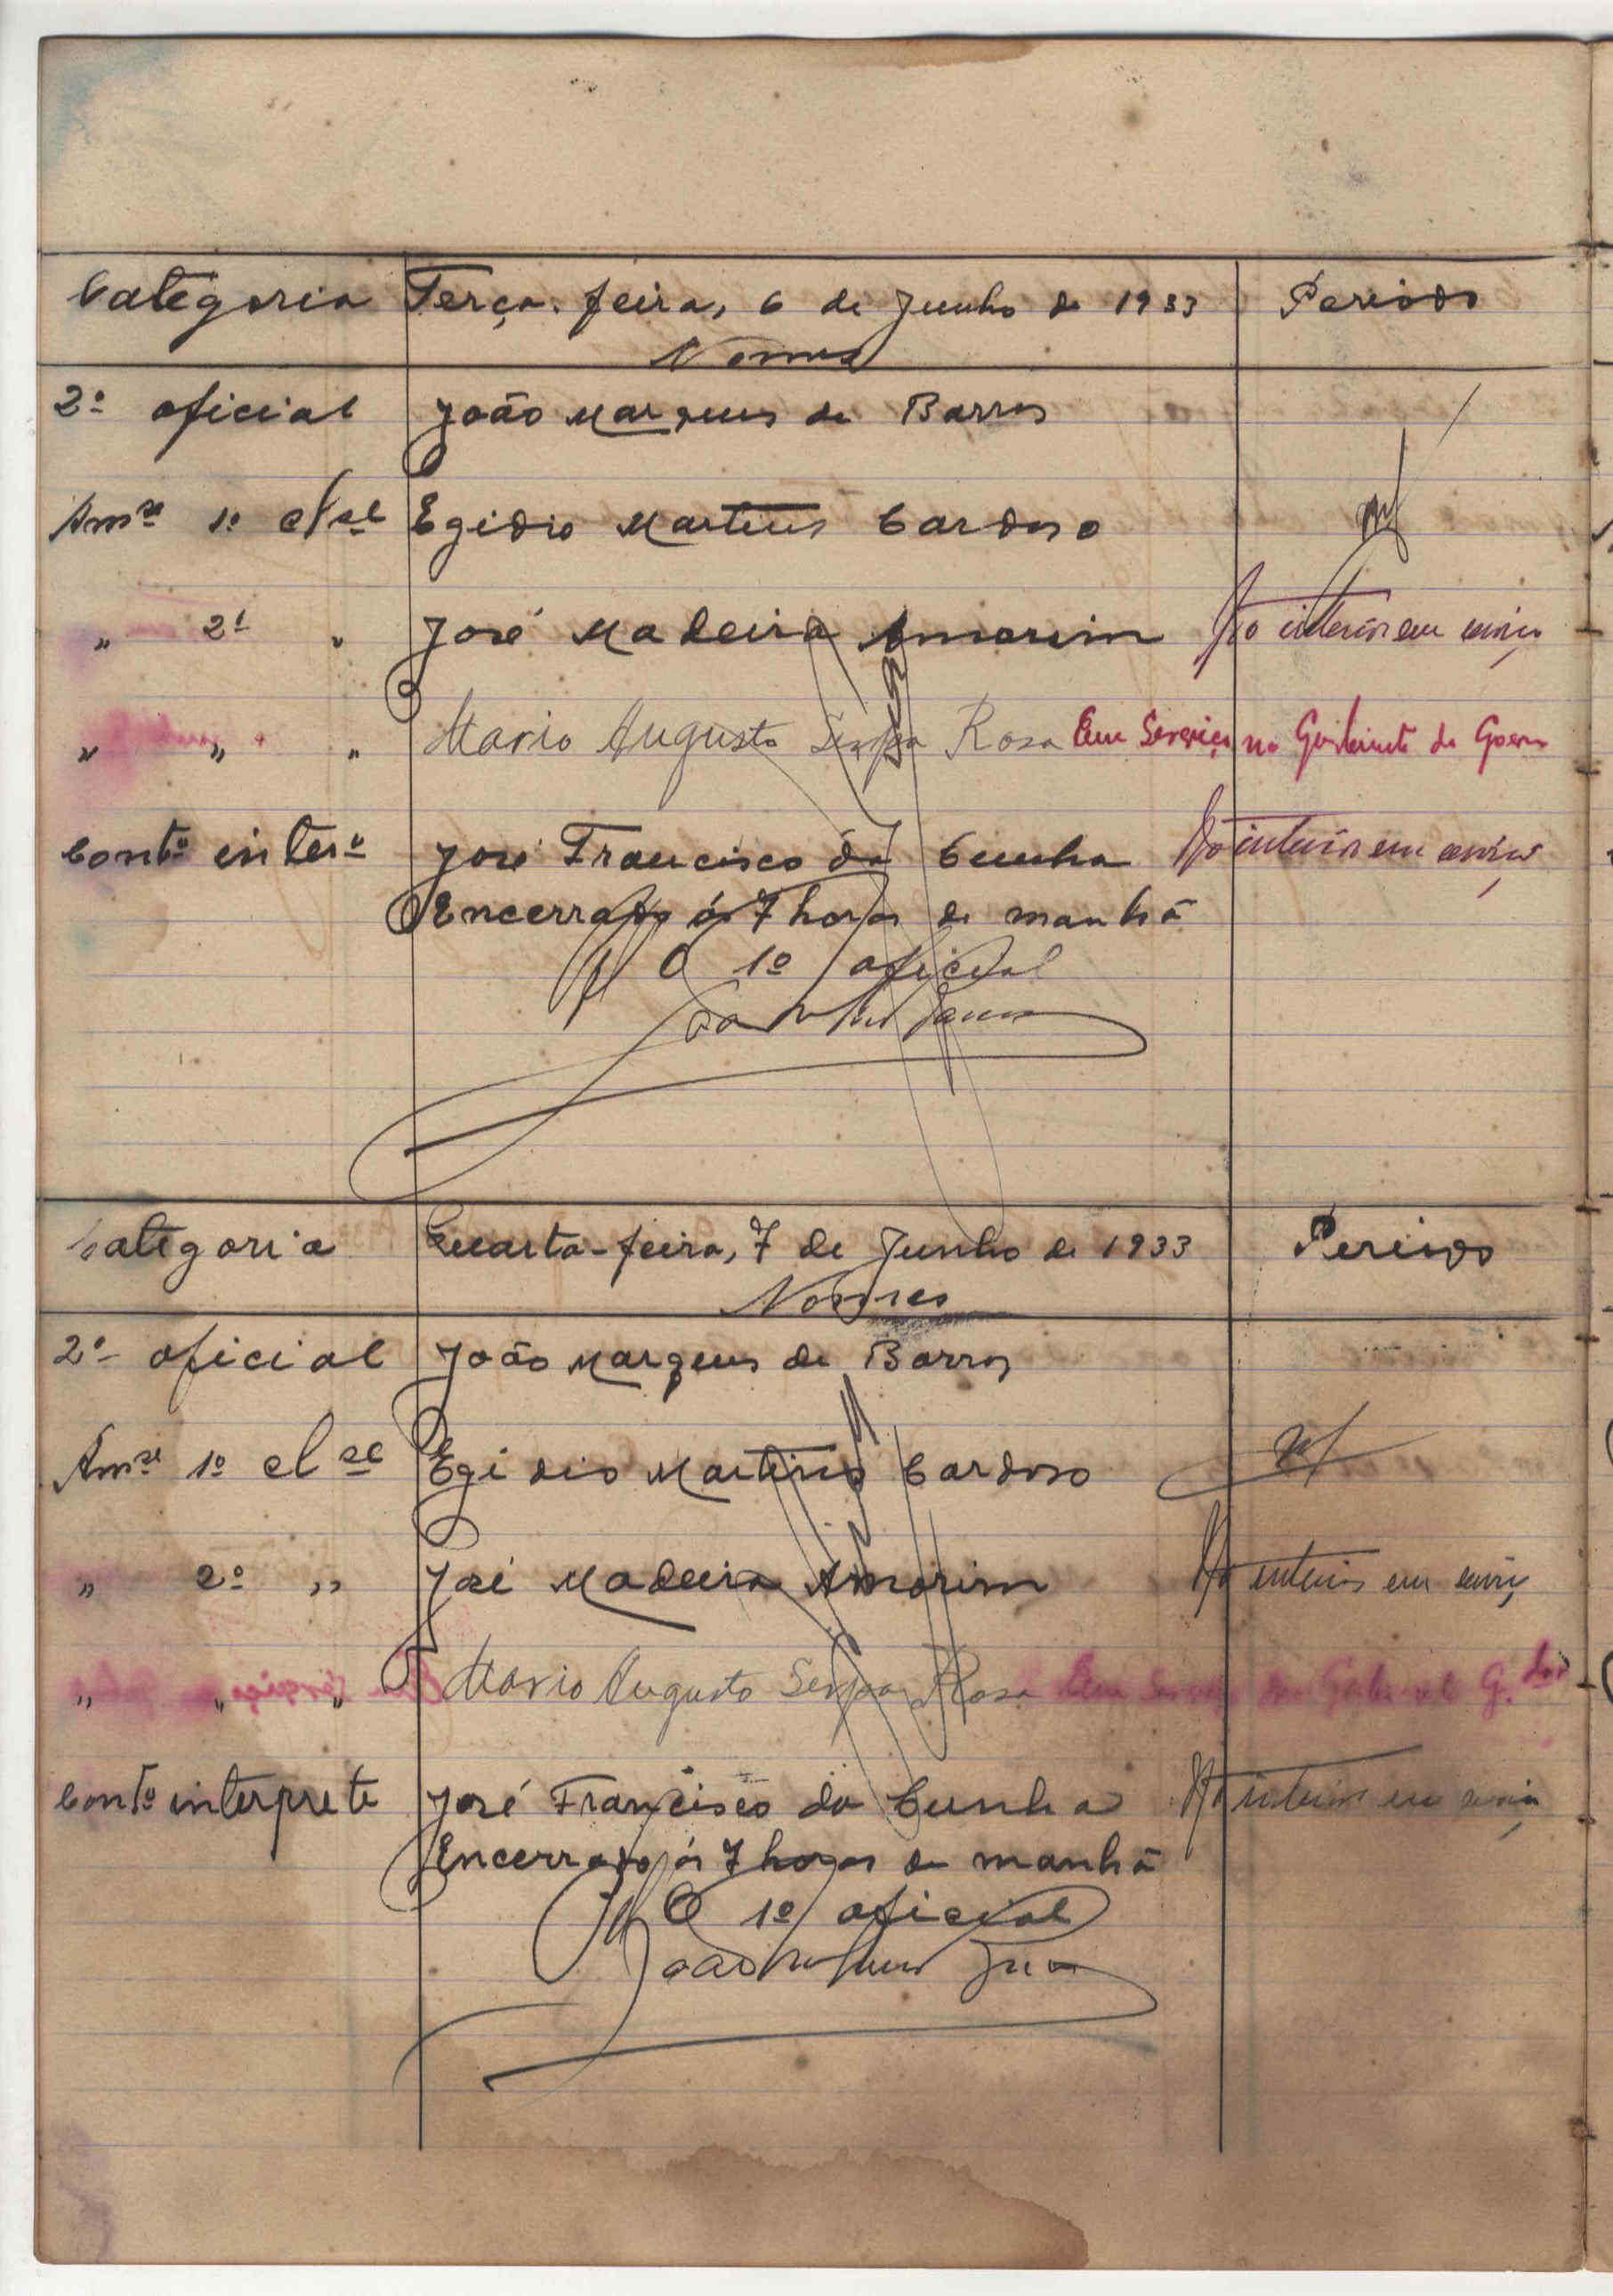 Categoria Terça-feira, 6 de Junho de 1933 Periodo
Nomes
2º oficial João Marques de Barros
Amse 1º clse Egidio Martins Cardoso
" 2º " José Madeira Amorim No interior em serviço
" " " Mario Augusto Serpa Rosa Em Serviço no Gabinete do Govern
Contº interº José Francisco da Cunha No interior em serviço
Encerrado ás 7 horas da manhã
O 1º oficial
Categoria Quarta-feira, 7 de Junho de 1933 Periodo
Nomes
2º oficial João Marques de Barros
Amse 1º clse Egidio Martins Cardoso
" 2º " José Madeira Amorim No interior em serviç
" " " Mario Augusto Serpa Rosa Em Serviço no Gabinete G.dor
Contº interprete José Francisco da Cunha No interior em serviço
Encerrado ás 7 horas da manhã
O 1º oficial